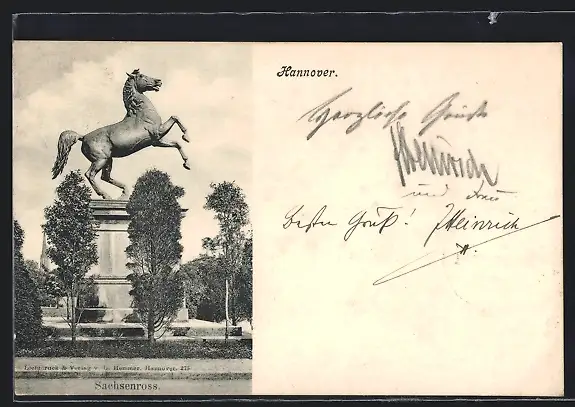 Hannover.
Herzliche Grüße
Heinrich
und Frau
Besten Gruß! Heinrich
Lichtdruck & Verlag v. L. Hemmer, Hannover. 215
Sachsenross.